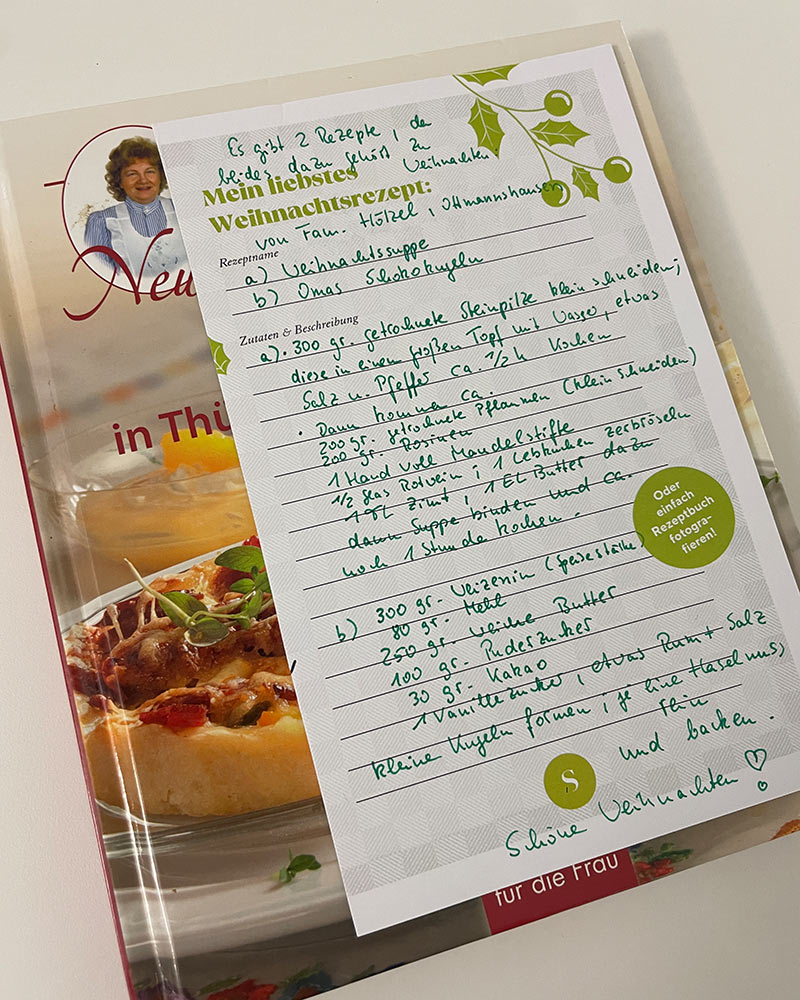 Es gibt 2 Rezepte, da
beides dazu gehört zu
Weihnachten.
Mein liebstes
Weihnachtsrezept:
von Fam. Hötzel, Ottmannshausen
Rezeptname
a) Weihnachtssuppe
b) Omas Schokokugeln
Zutaten & Beschreibung
a) • 300 gr. getrocknete Steinpilze klein schneiden;
diese in einem großen Topf mit Wasser, etwas
Salz u. Pfeffer ca. 1/2 h kochen
• Dann kommen ca.
200 gr. getrocknete Pflaumen (klein schneiden)
200 gr. Rosinen
1 Hand voll Mandelstifte
1/2 Glas Rotwein; 1 Lebkuchen zerbröseln
1 TL Zimt, 1 EL Butter dazu
dann Suppe binden und ca.
noch 1 Stunde kochen.
b) 300 gr. Weizenin (Speisestärke)
80 gr. Mehl
250 gr. weiche Butter
100 gr. Puderzucker
30 gr. Kakao
1 Vanillezucker, etwas Rum + Salz
kleine Kugeln formen; je eine Haselnuss,
rein
und backen.
Oder
einfach
Rezeptbuch
fotogra-
fieren!
S
Schöne Weihnachten!
Neu
in Thü
für die Frau